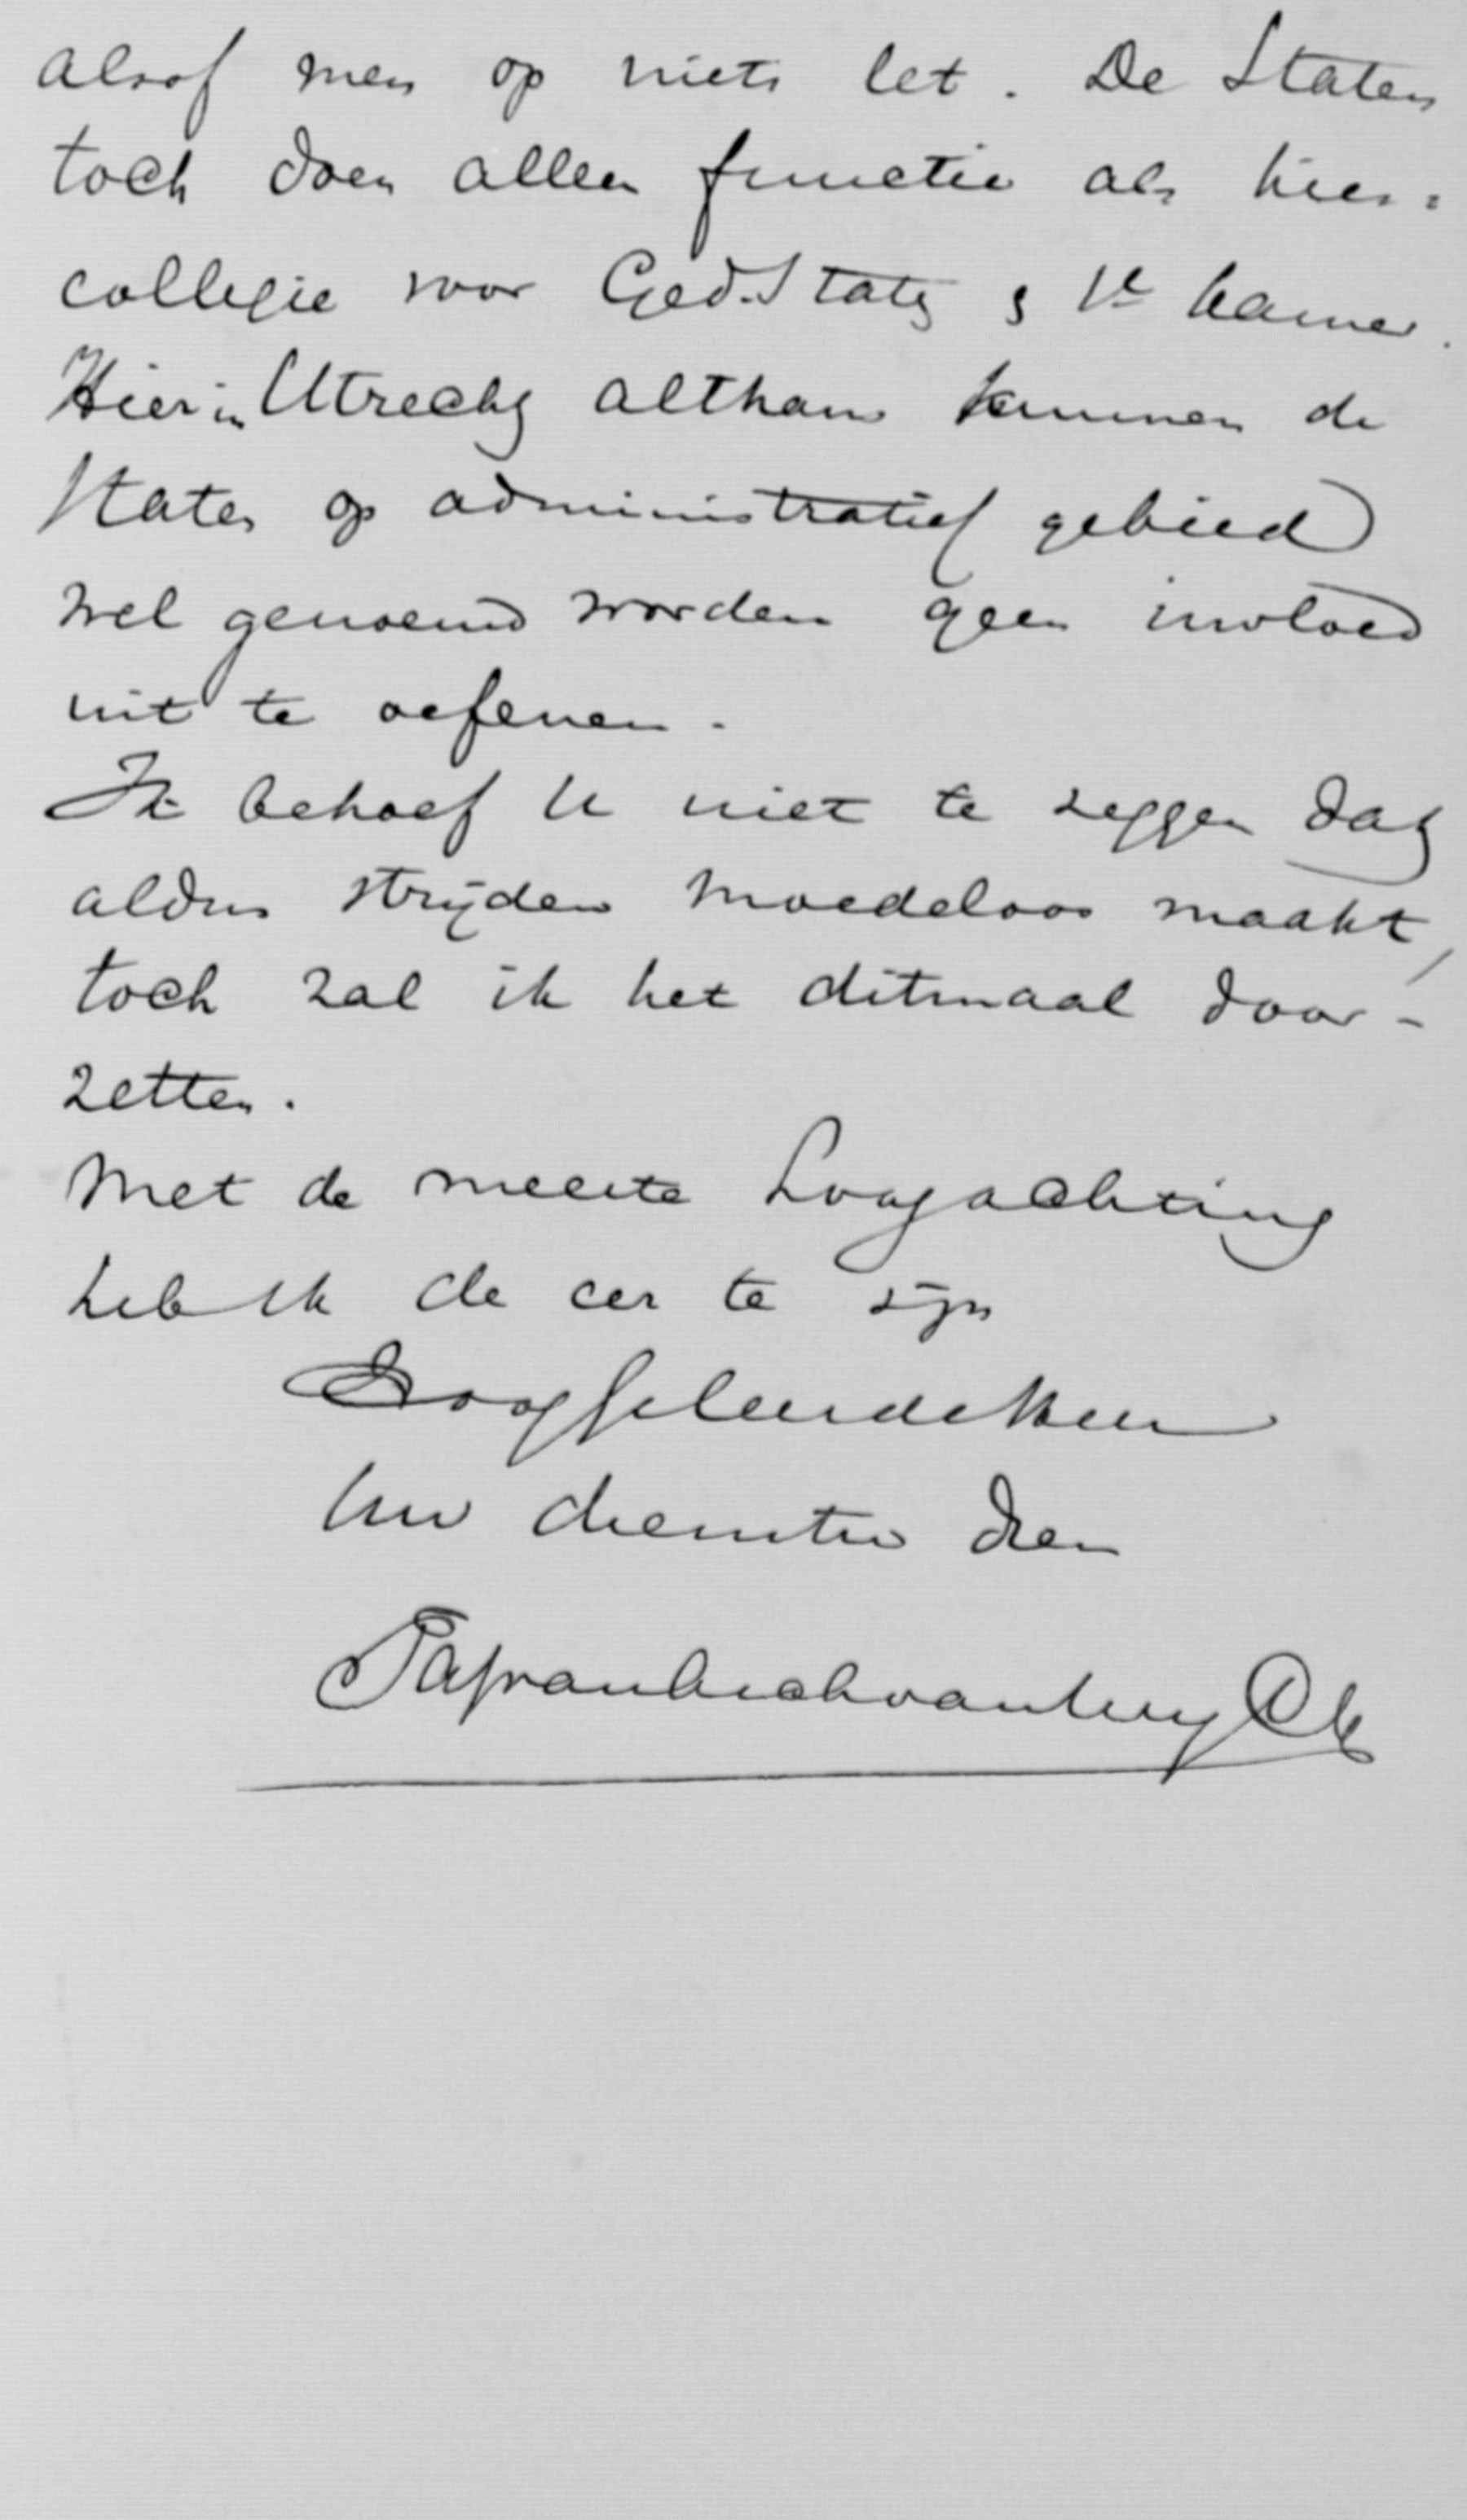 alsof men op niets let. De Staten
toch doen alleen functie als kies=
collegie voor Ged. Staten & 1e kamer.
Hier in Utrecht althans kunnen de
Staten op administratief gebied
wel genoemd worden geen invloed
uit te oefenen.
Ik behoef U niet te zeggen dat
aldus strijden moedeloos maakt,
toch zal ik het ditmaal door-
zetten.
Met de meeste hoogachting
heb ik de eer te zijn
Hooggeleerde Heer
Uw dienstw dien